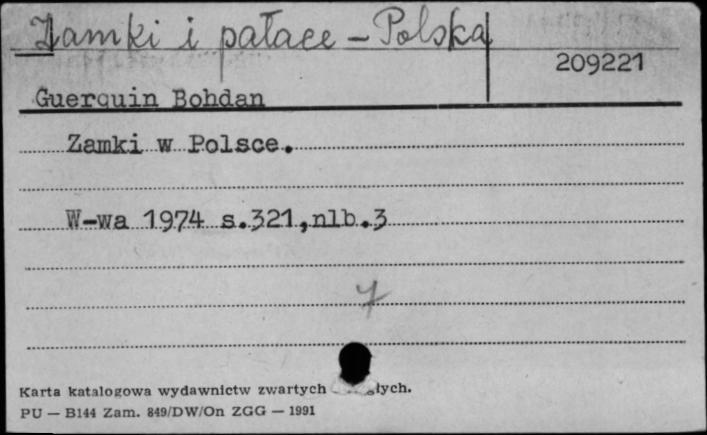 Zamki i pałace - Polska
209221
Guerquin Bohdan
Zamki w Polsce.
W-wa 1974 s.321,nlb.3
7
Karta katalogowa wydawnictw zwartych
PU — B144 Zam. 849/DW/On ZGG — 1991